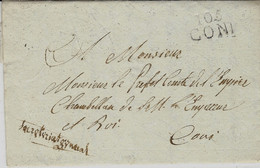 105
CONI
A Monsieur
Monsieur le Préfet Comte de l'Empire
Chambellan de S.M. l'Empereur
et Roi
Coni
Secretariat general